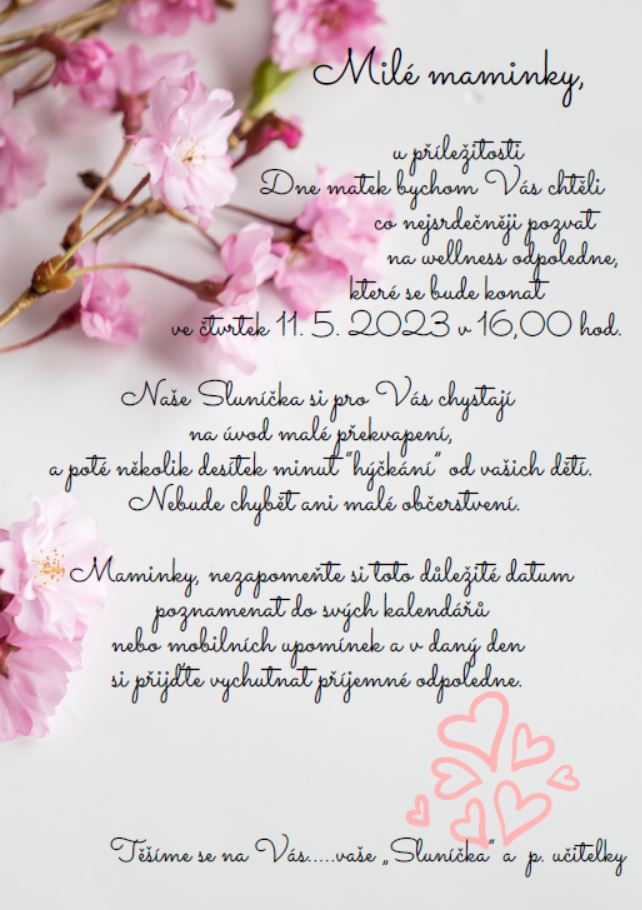 Milé maminky,
u příležitosti
Dne matek bychom Vás chtěli
co nejsrdečněji pozvat
na wellness odpoledne,
které se bude konat
ve čtvrtek 11. 5. 2023 v 16,00 hod.
Naše Sluníčka si pro Vás chystají
na úvod malé překvapení,
a poté několik desítek minut "hýčkání" od vašich dětí.
Nebude chybět ani malé občerstvení.
Maminky, nezapomeňte si toto důležité datum
poznamenat do svých kalendářů
nebo mobilních upomínek a v daný den
si přijďte vychutnat příjemné odpoledne.
Těšíme se na Vás.....vaše „Sluníčka" a p. učitelky